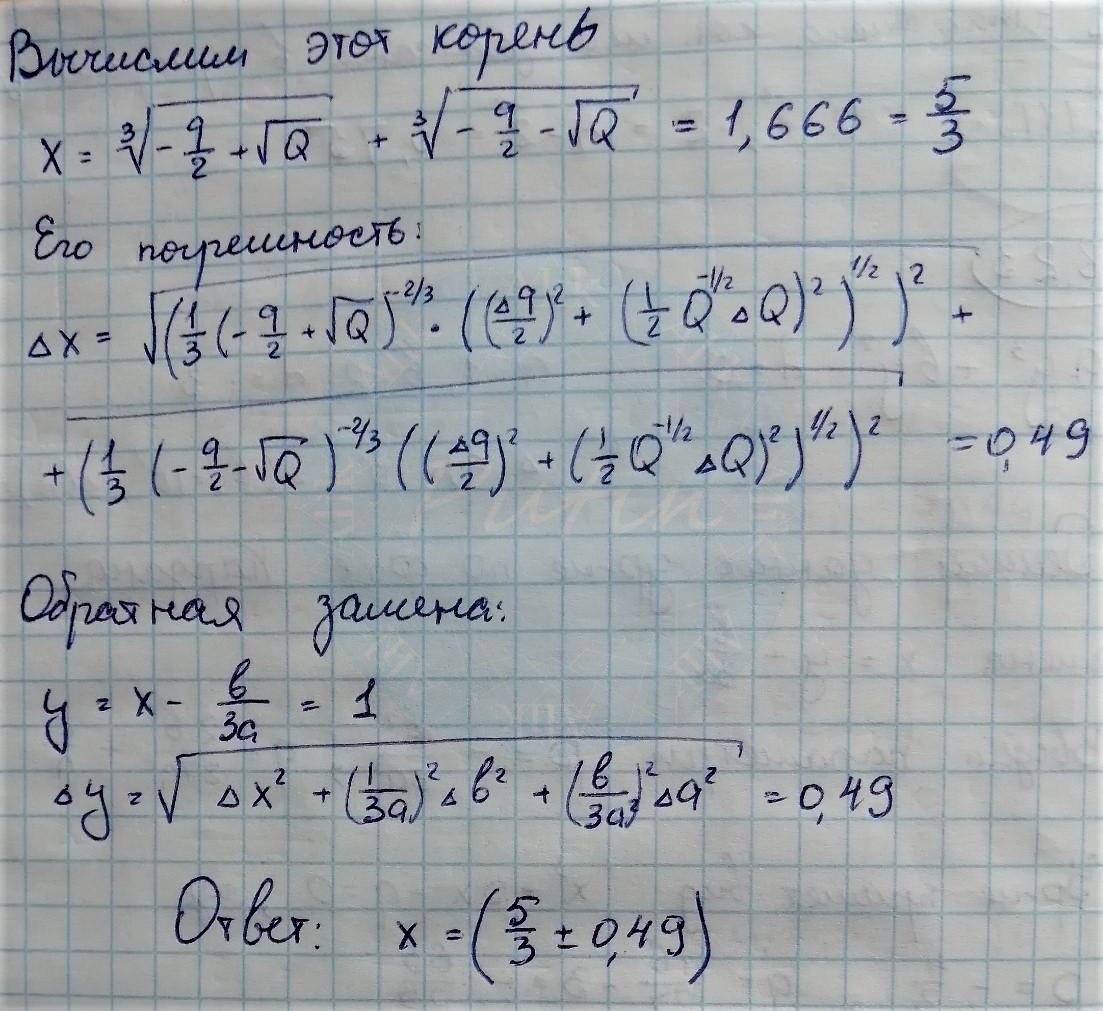 Вычислим этот корень
x = ∛(-q/2 + √Q) + ∛(-q/2 - √Q) = 1,666 = 5/3
Его погрешность:
Δx = √((1/3 (-q/2 + √Q)^(-2/3) · ((Δq/2)² + (1/2 Q^(-1/2) ΔQ)²)^(1/2))² +
+ (1/3 (-q/2 - √Q)^(-2/3) ((Δq/2)² + (1/2 Q^(-1/2) ΔQ)²)^(1/2))² = 0,49
Обратная замена:
y = x - b/3a = 1
Δy = √(Δx² + (1/3a)² Δb² + (b/3a²)² Δa²) = 0,49
Ответ: x = (5/3 ± 0,49)